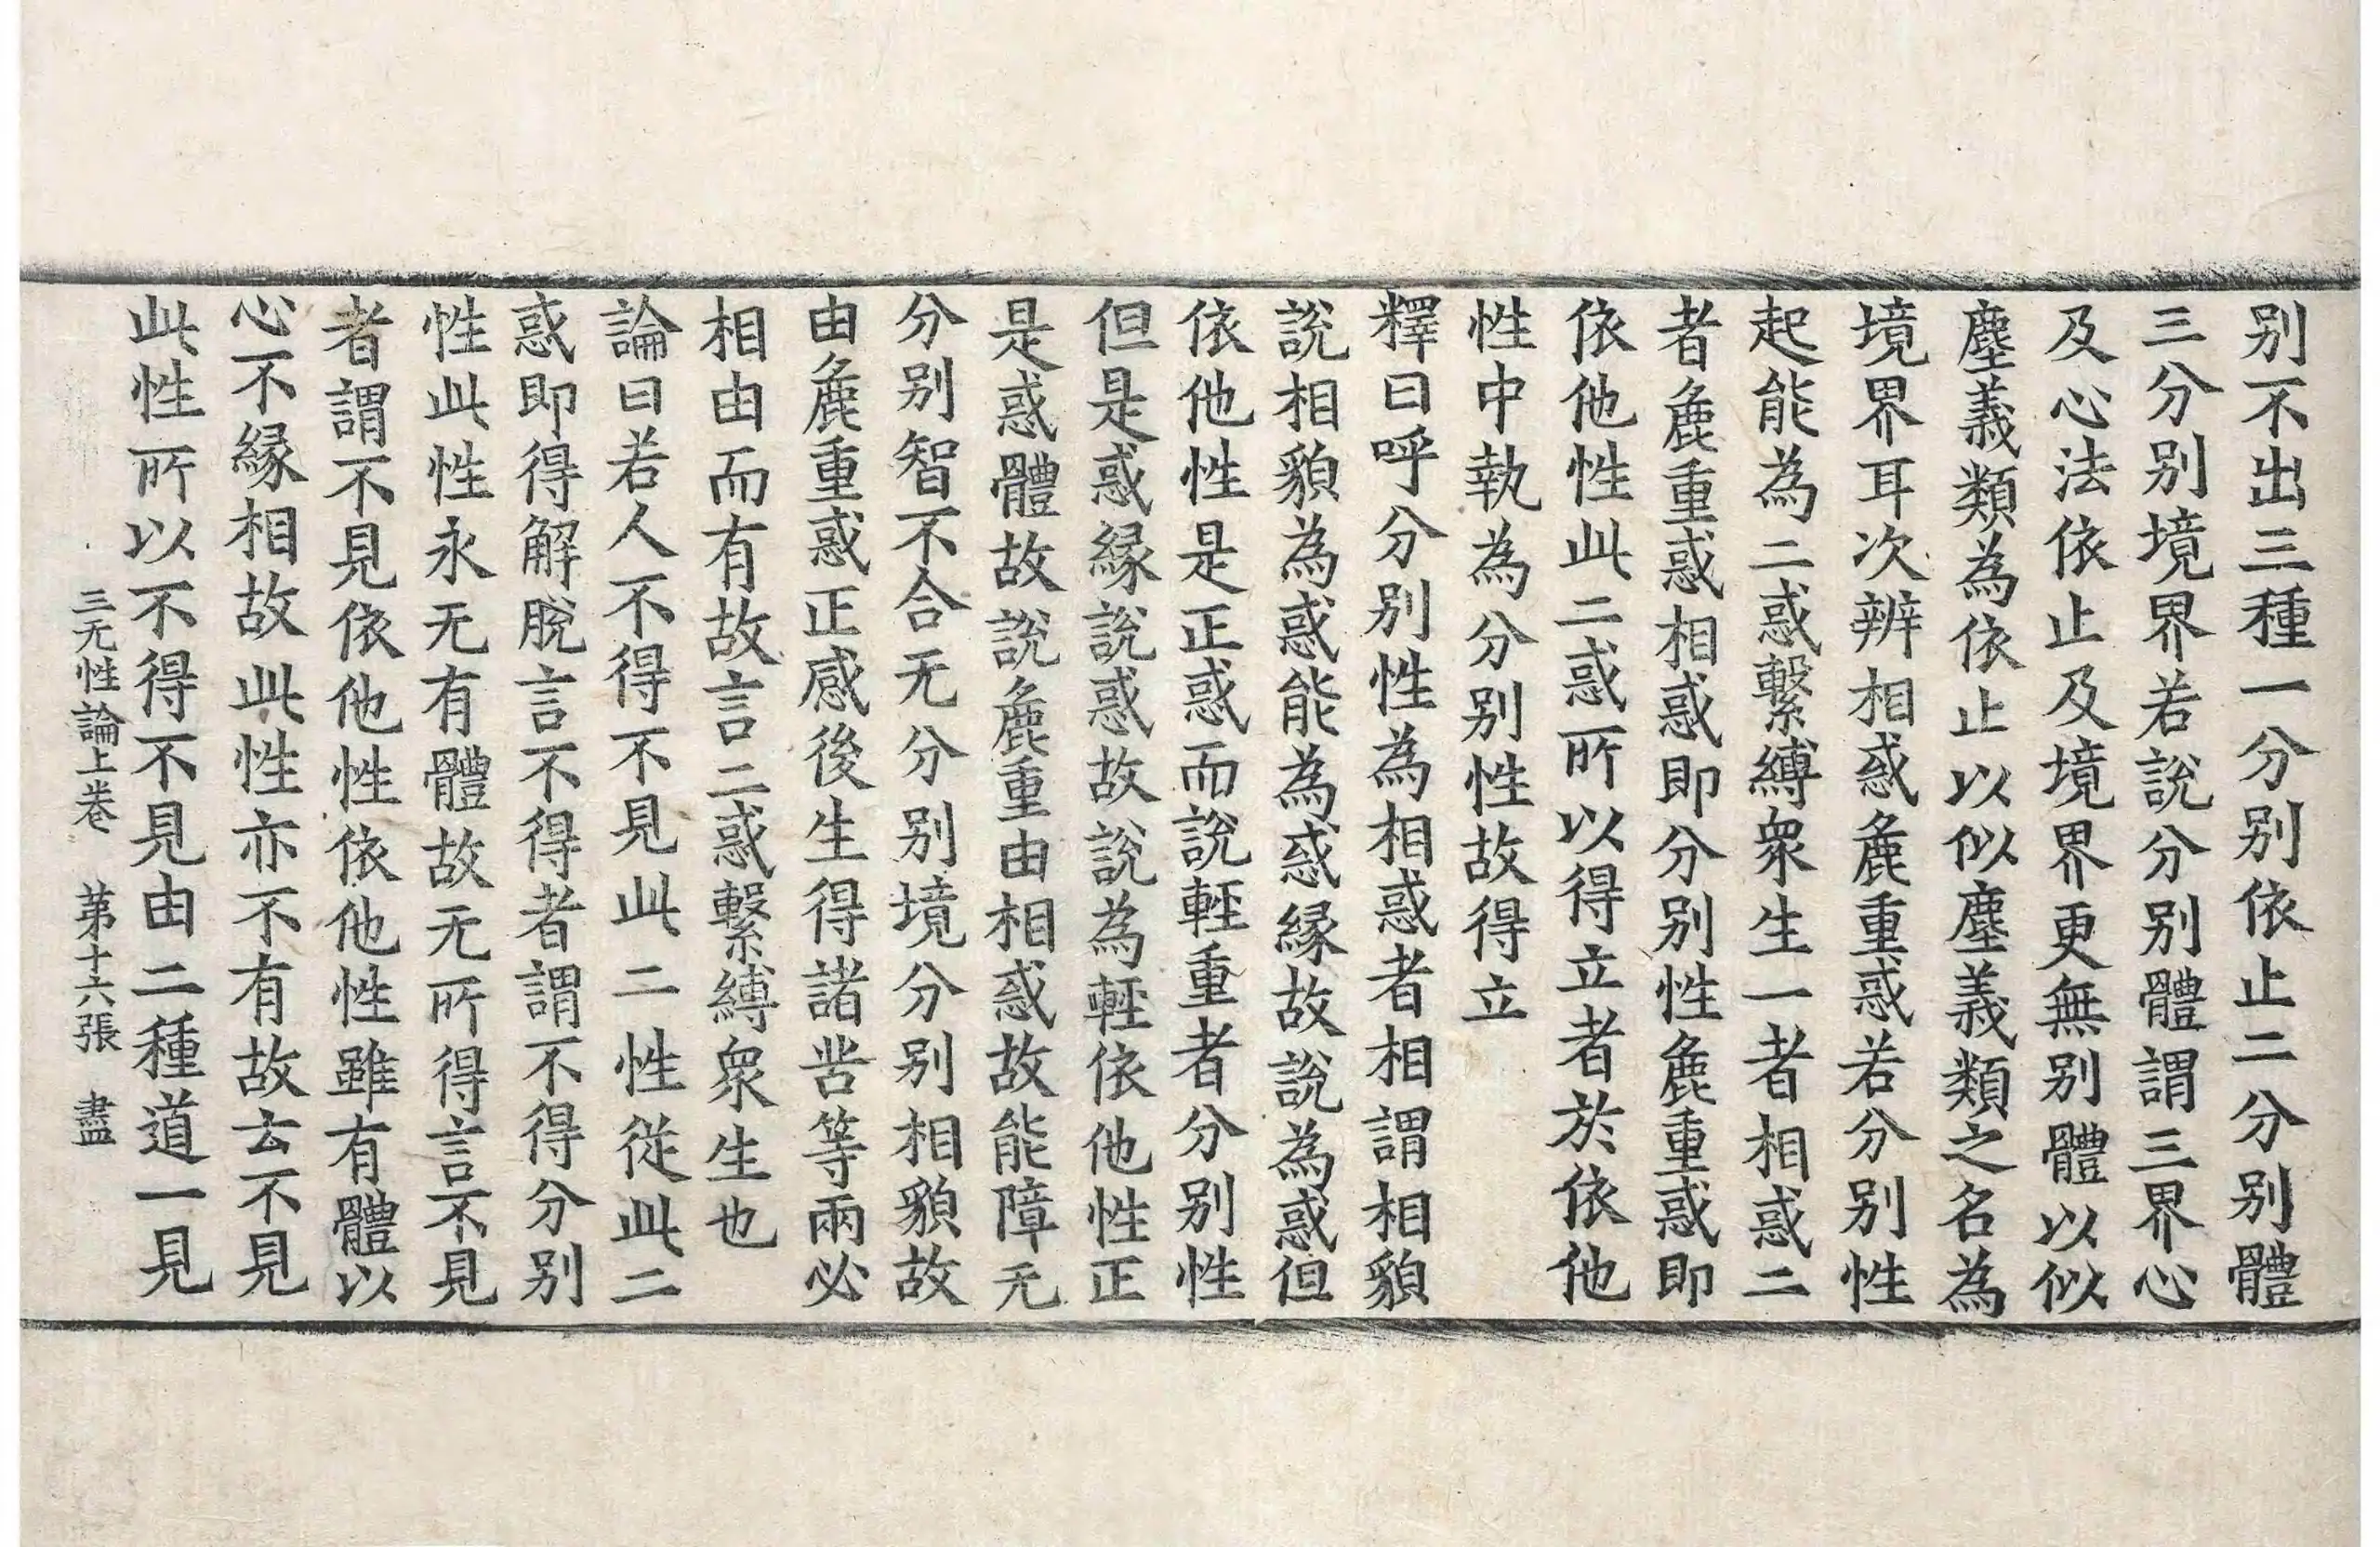 别不出三種一分别依止二分别體
三分别境界若說分别體謂三界心
及心法依止及境界更無别體以似
塵義類為依止以似塵義類之名為
境界耳次辨相惑麁重惑若分别性
起能為二惑繫縛衆生一者相惑二
者麁重惑相惑即分别性麁重惑即
依他性此二惑所以得立者於依他
性中執為分别性故得立
釋曰呼分别性為相惑者相謂相貌
說相貌為惑能為惑縁故說為惑但
依他性是正惑而說輕重者分别性
但是惑縁說惑故說為輕依他性正
是惑體故說麁重由相惑故能障无
分别智不合无分别境分别相貌故
由麁重惑正感後生得諸苦等兩必
相由而有故言二惑繫縛衆生也
論曰若人不得不見此二性從此二
惑即得解脫言不得者謂不得分别
性此性永无有體故无所得言不見
者謂不見依他性依他性雖有體以
心不縁相故此性亦不有故云不見
此性所以不得不見由二種道一見
三无性論上卷 第十六張 盡